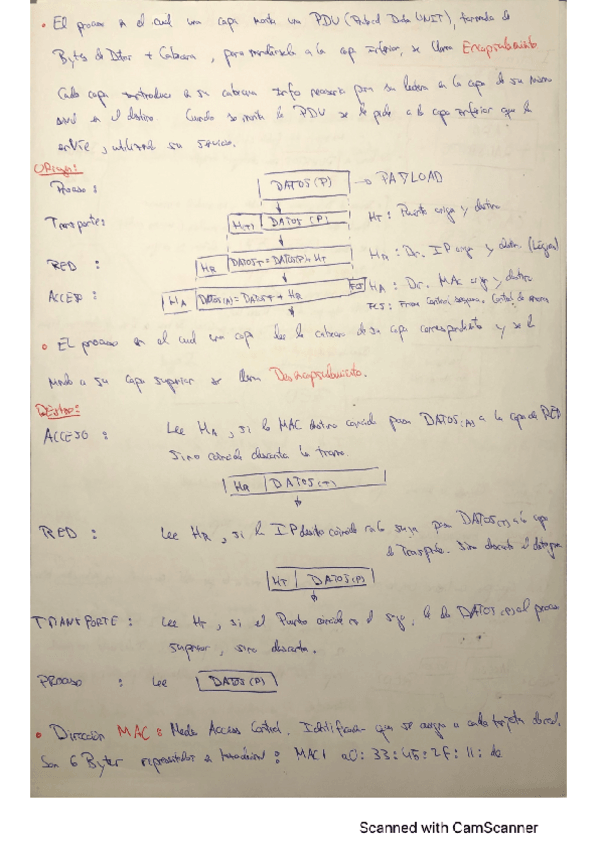 • El proceso en el cual una capa monta una PDU (Protocol Data UNIT), formada de
Bytes de Datos + Cabecera, para mandársela a la capa inferior, se llama Encapsulamiento
Cada capa introduce en su cabecera info necesaria para su lectura en la capa de su mismo
nivel en el destino. Cuando se monta la PDU se le pide a la capa inferior que la
envíe, utilizando su servicio.
ORigen:
Proceso: DATOS (P) → PAYLOAD
Transporte: H(T) DATOS (P) HT: Puerto origen y destino
RED: HR DATOST = DATOS(P) + HT HR: Dir. IP origen y destino (Lógica)
ACCESO: HA DATOS(A) = DATOST + HR FCS HA: Dir. MAC origen y destino
FCS: Frame Control Control de errores
• EL proceso en el cual una capa lee la cabecera de su capa correspondiente y se lo
manda a su capa superior se llama Desencapsulamiento.
Destino:
ACCESO: Lee HA, si la MAC destino coincide pasa DATOS(A) a la capa de RED
Sino coincide descarta la trama.
HR DATOS(T)
RED: Lee HR, si la IP destino coincide con la suya pasa DATOS(T) a la capa
de Transporte. Sino descarta el datagrama
HT DATOS(P)
TRANSPORTE: Lee HT, si el Puerto coincide con el suyo, le da DATOS(P) al proceso
superior, sino descarta.
PROCESO: Lee DATOS (P)
• Dirección MAC: Media Access Control. Identificador que se asigna a cada tarjeta de red.
Son 6 Bytes representados en hexadecimal: MAC1 a0:33:45:2F:11:de
Scanned with CamScanner